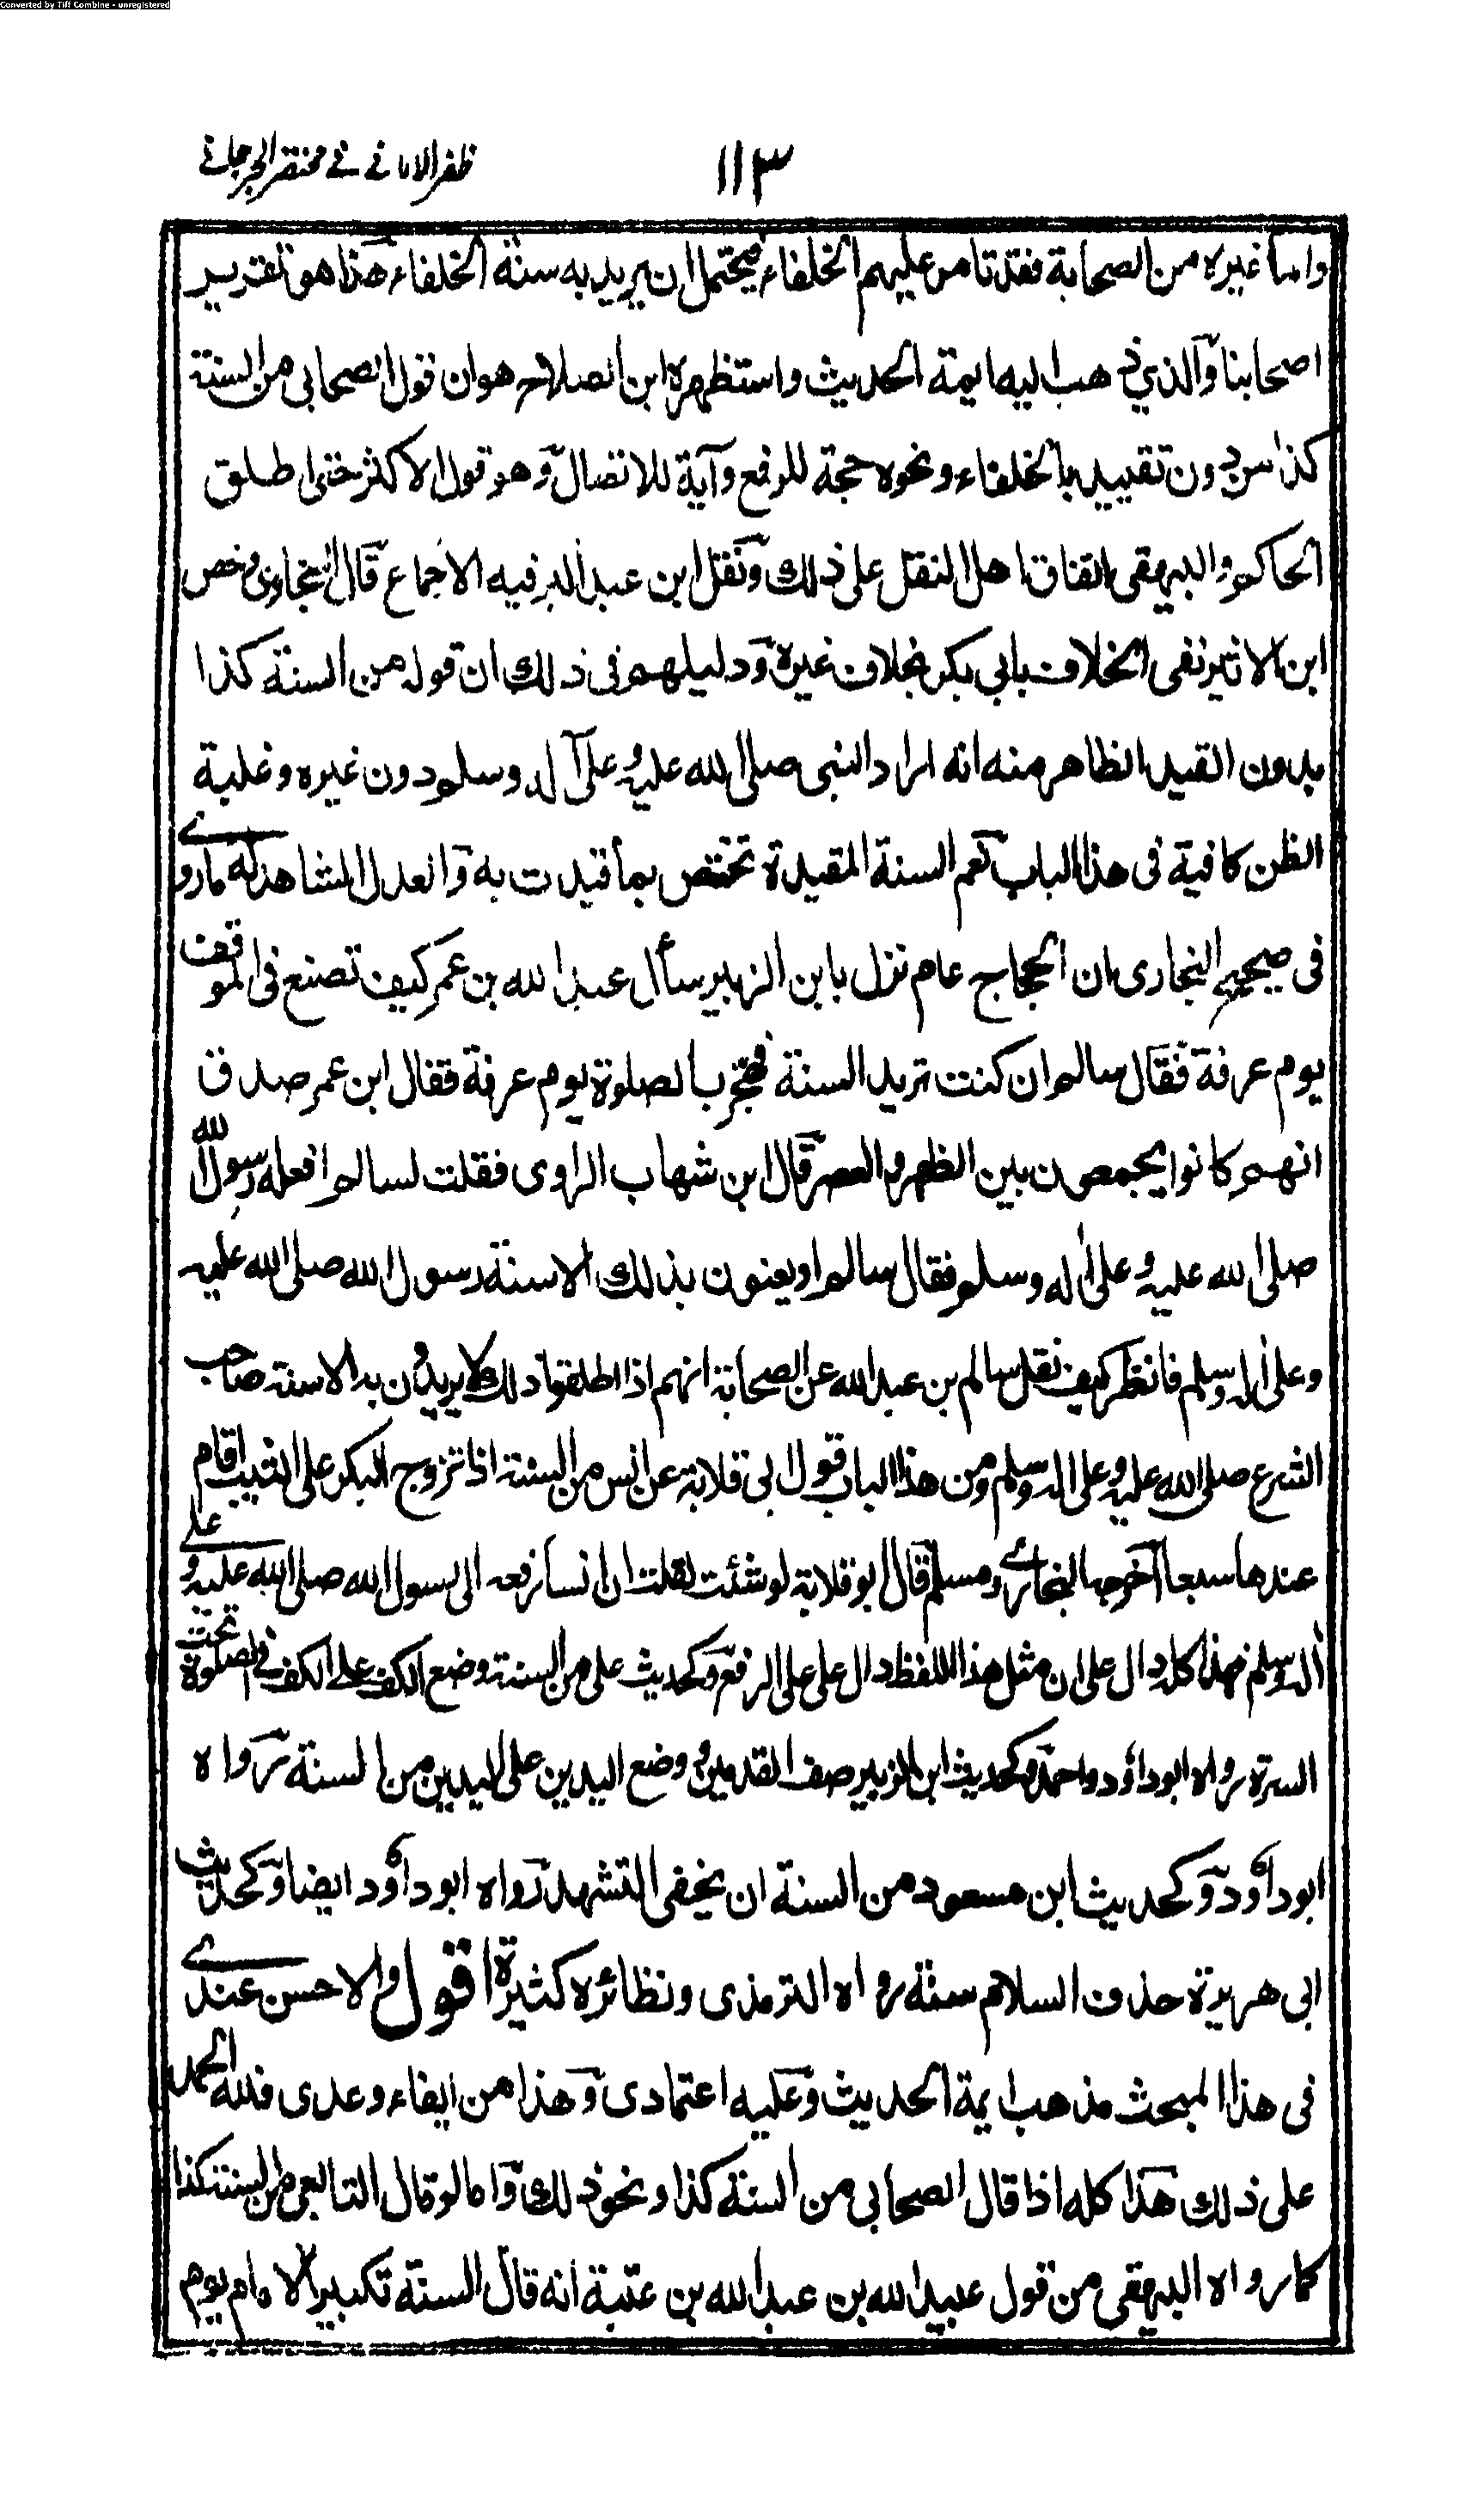 Converted by Tiff Combine - unregistered
١١٣
ظفر الامانی فی مختصر الجرجانی
واما غيره من الصحابة فقد تامر عليهم الخلفاء فيحتمل ان يريد به سنة الخلفاء هذا هو تقرير
اصحابنا والذي ذهب اليه ايمة الحديث واستظهره ابن الصلاح هو ان قول الصحابى من السنة
كذا من دون تقييد بالخلفاء ونحوه حجة للرفع وآية للاتصال وهو قول الاكثر حتى اطلق
الحاكم والبيهقى اتفاق اهل النقل على ذلك ونقل ابن عبد البر فيه الاجماع قال السخاوى وخص
ابن الاثير نفى الخلاف بابي بكر بخلاف غيره ودليلهم فى ذلك ان قوله من السنة كذا
بدون القيد الظاهر منه انه اراد النبى صلى الله عليه وعلى آله وسلم دون غيره وغلبة
الظن كافية فى هذا الباب نعم السنة المقيدة تختص بما قيدت به والعدل المشاهد له ما روى
فى صحيح البخارى ان الحجاج عام نزل بابن الزبير سأل عبد الله بن عمر كيف تصنع فى الموقف
يوم عرفة فقال سالم ان كنت تريد السنة فهجر بالصلوة يوم عرفة فقال ابن عمر صدق
انهم كانوا يجمعون بين الظهر والعصر قال ابن شهاب الراوى فقلت لسالم افعله رسول الله
صلى الله عليه وعلى اله وسلم فقال سالم او يعنون بذلك الا سنة رسول الله صلى الله عليه
وعلى اله وسلم فانظر كيف نقل سالم بن عبد الله عن الصحابة انهم اذا اطلقوا ذلك لا يريدون به الا سنة صاحب
الشرع صلى الله عليه وعلى اله وسلم ومن هذا الباب قول ابى قلابة عن انس من السنة اذا تزوج البكر على الثيب اقام
عندها سبعا اخرجه البخارى ومسلم قال ابو قلابة لو شئت لقلت ان انسا رفعه الى رسول الله صلى الله عليه وعلى
اله وسلم فهذا كله دال على ان مثل هذا اللفظ دال على على الرفع وكحديث على من السنة وضع الكف على الكف فى الصلوة تحت
السرة رواه ابو داؤد واحمد وكحديث ابن الزبير صف القدمين ووضع اليدين على اليدين من السنة رواه
ابو داؤد وكحديث ابن مسعود من السنة ان يخفى التشهد رواه ابو داؤد ايضا وكحديث
ابى هريرة حذف السلام سنة رواه الترمذى ونظائره كثيرة اقول والاحسن عندى
فى هذا المبحث مذهب ايمة الحديث وعليه اعتمادى وهذا من ايفاء وعدى فلله الحمد
على ذلك هذا كله اذا قال الصحابى من السنة كذا ونحو ذلك واما لو قال التابعى من السنة كذا
كما رواه البيهقى من قول عبيد الله بن عبد الله بن عتبة انه قال السنة تكبير الامام يوم